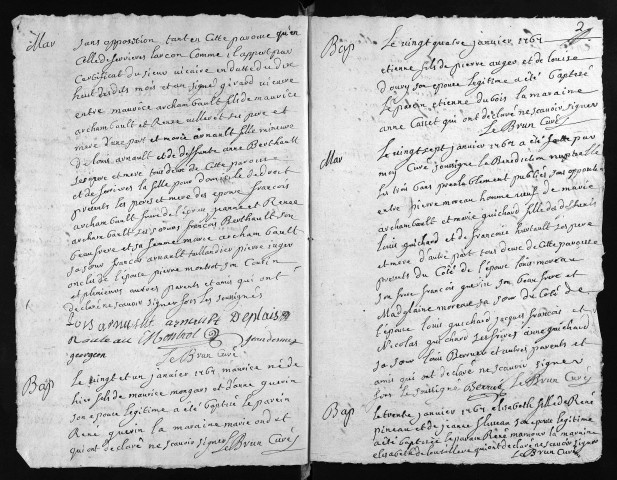 Mar
sans opposition tant en Cette paroisse qu'en
Celle de
Certificat du sieur vicaire
huit desdits mois et an signé girard vicaire
entre maurice archambault fils de maurice
archambault et Renee ses pere et
mere d'une part et marie arnault fille mineure
de louis arnault et de deffunte anne Berthault
ses pere et mere tous deux de Cette paroisse
et de la fille pour domicile de droit
presents les peres et mere des epoux francois
archambault frere de l'epoux jeanne et Renee
archambault ses soeurs francois Berthault son
beau frere et sa femme marie archambault
sa soeur francois arnault taillandier pierre
oncle de l'epouse pierre montrot son Cousin
et plusieurs autres parents et amis qui ont
declaré ne scavoir signer fors les soussignés
Louis arnault arnault
georgeon
Le Brun Curé
Bap
Le vingt et un janvier 1761 maurice né de
hier fils de maurice et d'anne guerin
son epouse legitime a été baptisé le parein
René guerin la maraine marie ont
qui ont declaré ne scavoir signer Le Brun Curé
2
Bap
Le vingt quatre janvier 1761
etienne fils de pierre auger et de louise
son epouse legitime a été baptisé
le parein etienne dubois la maraine
anne Casset qui ont declaré ne scavoir signer
Le Brun Curé
Mar
Le vingt sept janvier 1761 a été faitte par
moy Curé soussigné la Benediction nuptialle
les trois bans prealablement publiés sans opposition
entre pierre moreau homme veuf de marie
archambault et marie guichard fille de deffunts
louis guichard et de francoise hurtault ses pere
et mere d'autre part tous deux de Cette paroisse
presents du Coté de l'epoux louis moreau
son frere francois guerin son beau frere et
Madelaine moreau sa soeur du Coté de
l'epouse louis guichard jacques francois et
Nicolas guichard ses freres anne guichard
sa soeur louis Bernier et autres parents et
amis qui ont declaré ne scavoir signer
fors le soussigné Bernier Le Brun Curé
Bap
Le trente janvier 1761 elisabeth fille de René
pineau et de jeanne son epouse legitime
a été baptisée le parein René la maraine
elisabeth qui ont declaré ne scavoir signer
Le Brun Curé